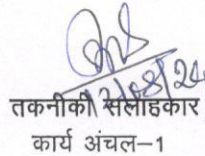 12/08/24
तकनीकी सलाहकार
कार्य अंचल-1